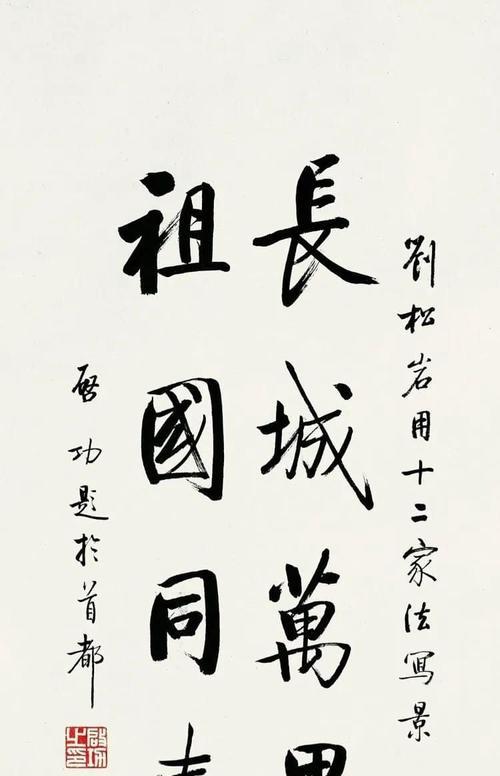 劉松岩用十二家法寫景
長城萬里
祖國同
啓功題於首都
啟功之印